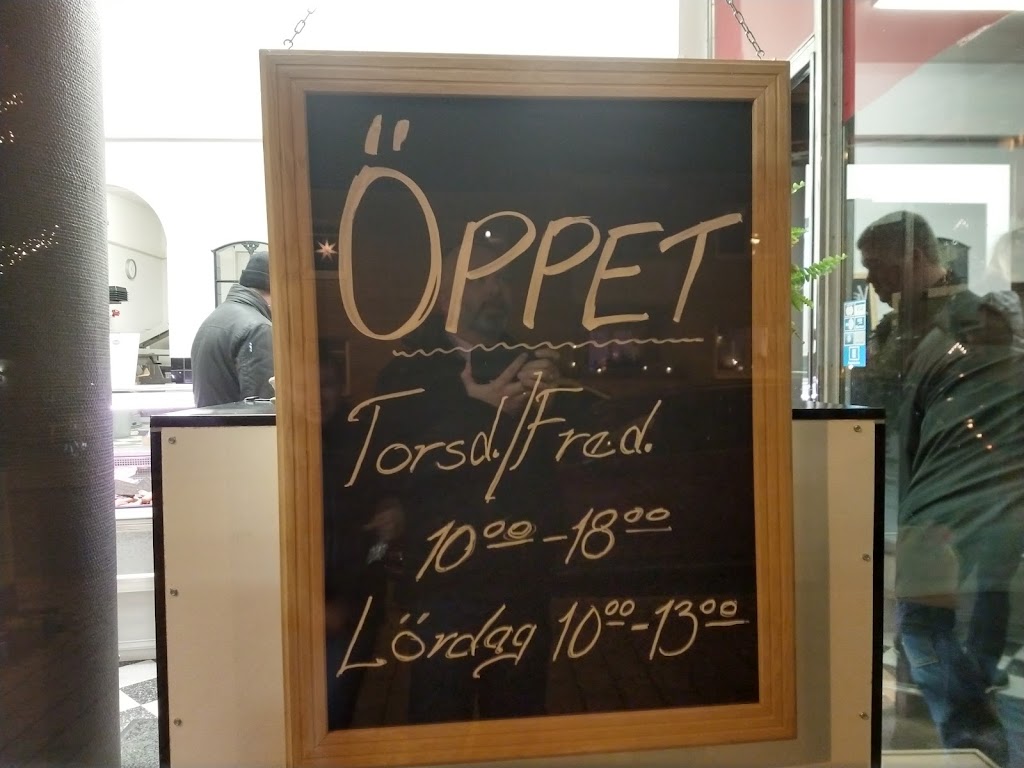 ÖPPET
Torsd./Fred.
10⁰⁰-18⁰⁰
Lördag 10⁰⁰-13⁰⁰